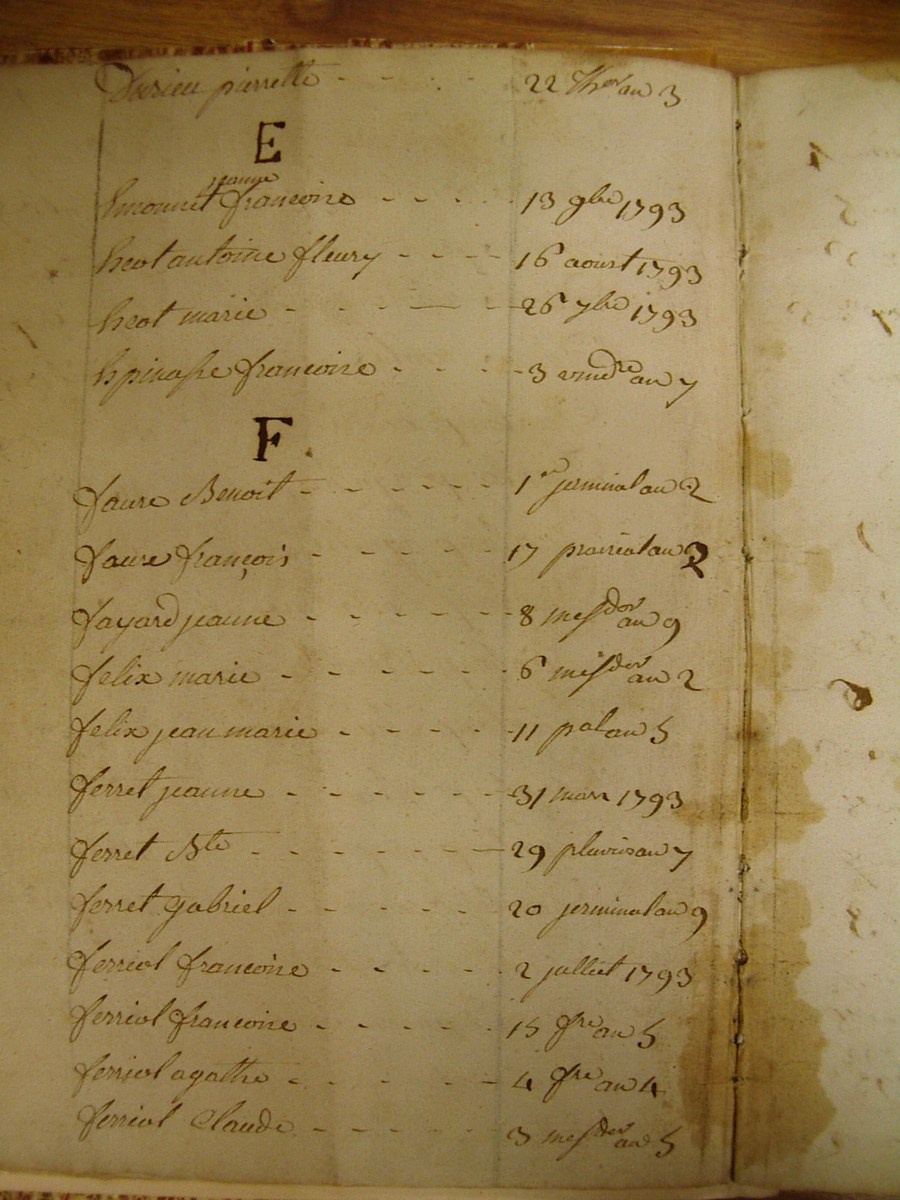 Durieu pierrette - - - - 22 Thor an 3
E
jeanne
Emonnet francoise - - - - 13 9bre 1793
heot antoine fleury - - - - 16 aoust 1793
heot marie - - - - 26 7bre 1793
Epinasse francoise - - - 3 vendre an 7
F
faure Benoit - - - - - - 1er jerminal an 2
faure françois - - - - - 17 prairial an 2
fayard jeanne - - - - - 8 messdor an 9
felix marie - - - - - - 6 messdor an 2
felix jean marie - - - - 11 pal an 5
ferret jeanne - - - - - - 31 mars 1793
ferret Bte - - - - - - - 29 pluvios an 7
ferret gabriel - - - - - 20 jerminal an 9
ferriol francoise - - - - 2 julliet 1793
ferriol francoise - - - - 15 fre an 5
ferriol agathe - - - - - 4 fre an 4
ferriol Claude - - - - - 3 messdor an 5